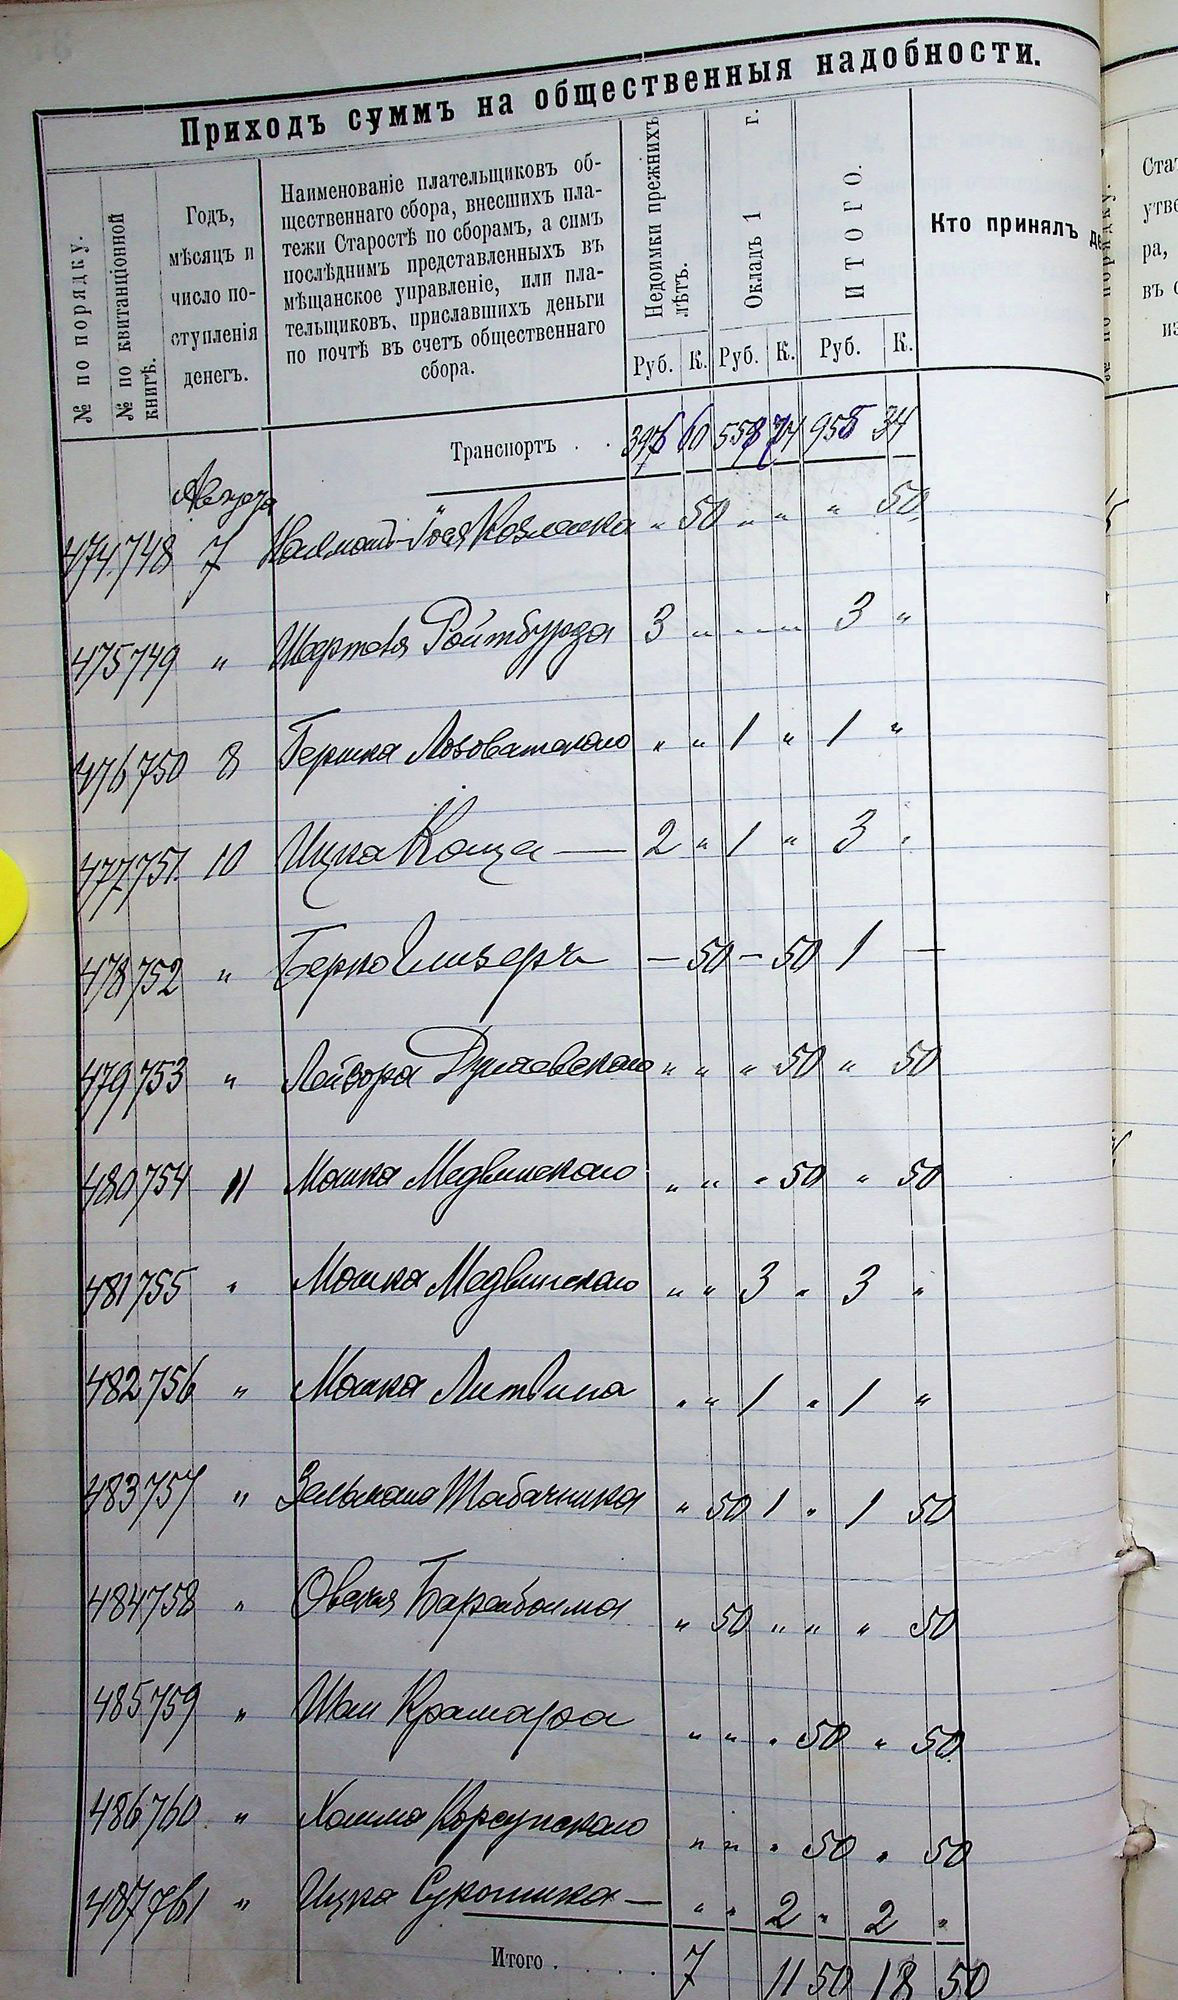 Приходъ суммъ на общественныя надобности.
№ по порядку.
№ по квитанціонной книгѣ.
Годъ,
мѣсяцъ и
число по-
ступленія
денегъ.
Наименованіе плательщиковъ об-
щественнаго сбора, внесшихъ пла-
тежи Старостѣ по сборамъ, а симъ
послѣднимъ представленныхъ въ
мѣщанское управленіе, или пла-
тельщиковъ, приславшихъ деньги
по почтѣ въ счетъ общественнаго
сбора.
Недоимки прежнихъ лѣтъ.
Окладъ 1 г.
ИТОГО.
Кто принялъ
Руб. К. Руб. К. Руб. К.
Транспортъ . . 396 60 558 74 955 34
Августа
474 748 7 Іося Козлова „ 50 „ „ „ 50
475 749 „ Ройтбурда 3 „ „ „ 3 „
476 750 8 Гершка Лозоватскаго „ „ 1 „ 1 „
477 751 10 Ицка Каца — 2 „ 1 „ 3 „
478 752 „ Берко — 50 — 50 1 —
479 753 „ Лейзора Дунаевскаго „ „ „ 50 „ 50
480 754 11 Мошка Медвинскаго „ „ „ 50 „ 50
481 755 „ Мошка Медвинскаго „ „ 3 „ 3 „
482 756 „ Мошка Литвина „ „ 1 „ 1 „
483 757 „ Табачника „ 50 1 „ 1 50
484 758 „ Овсея Баренбойма „ 50 „ „ „ 50
485 759 „ Крамара „ „ „ 50 „ 50
486 760 „ Хаима Корсунскаго „ „ „ 50 „ 50
487 761 „ Ицка Суконника — „ „ 2 „ 2 „
Итого . . . . . 7 11 50 18 50